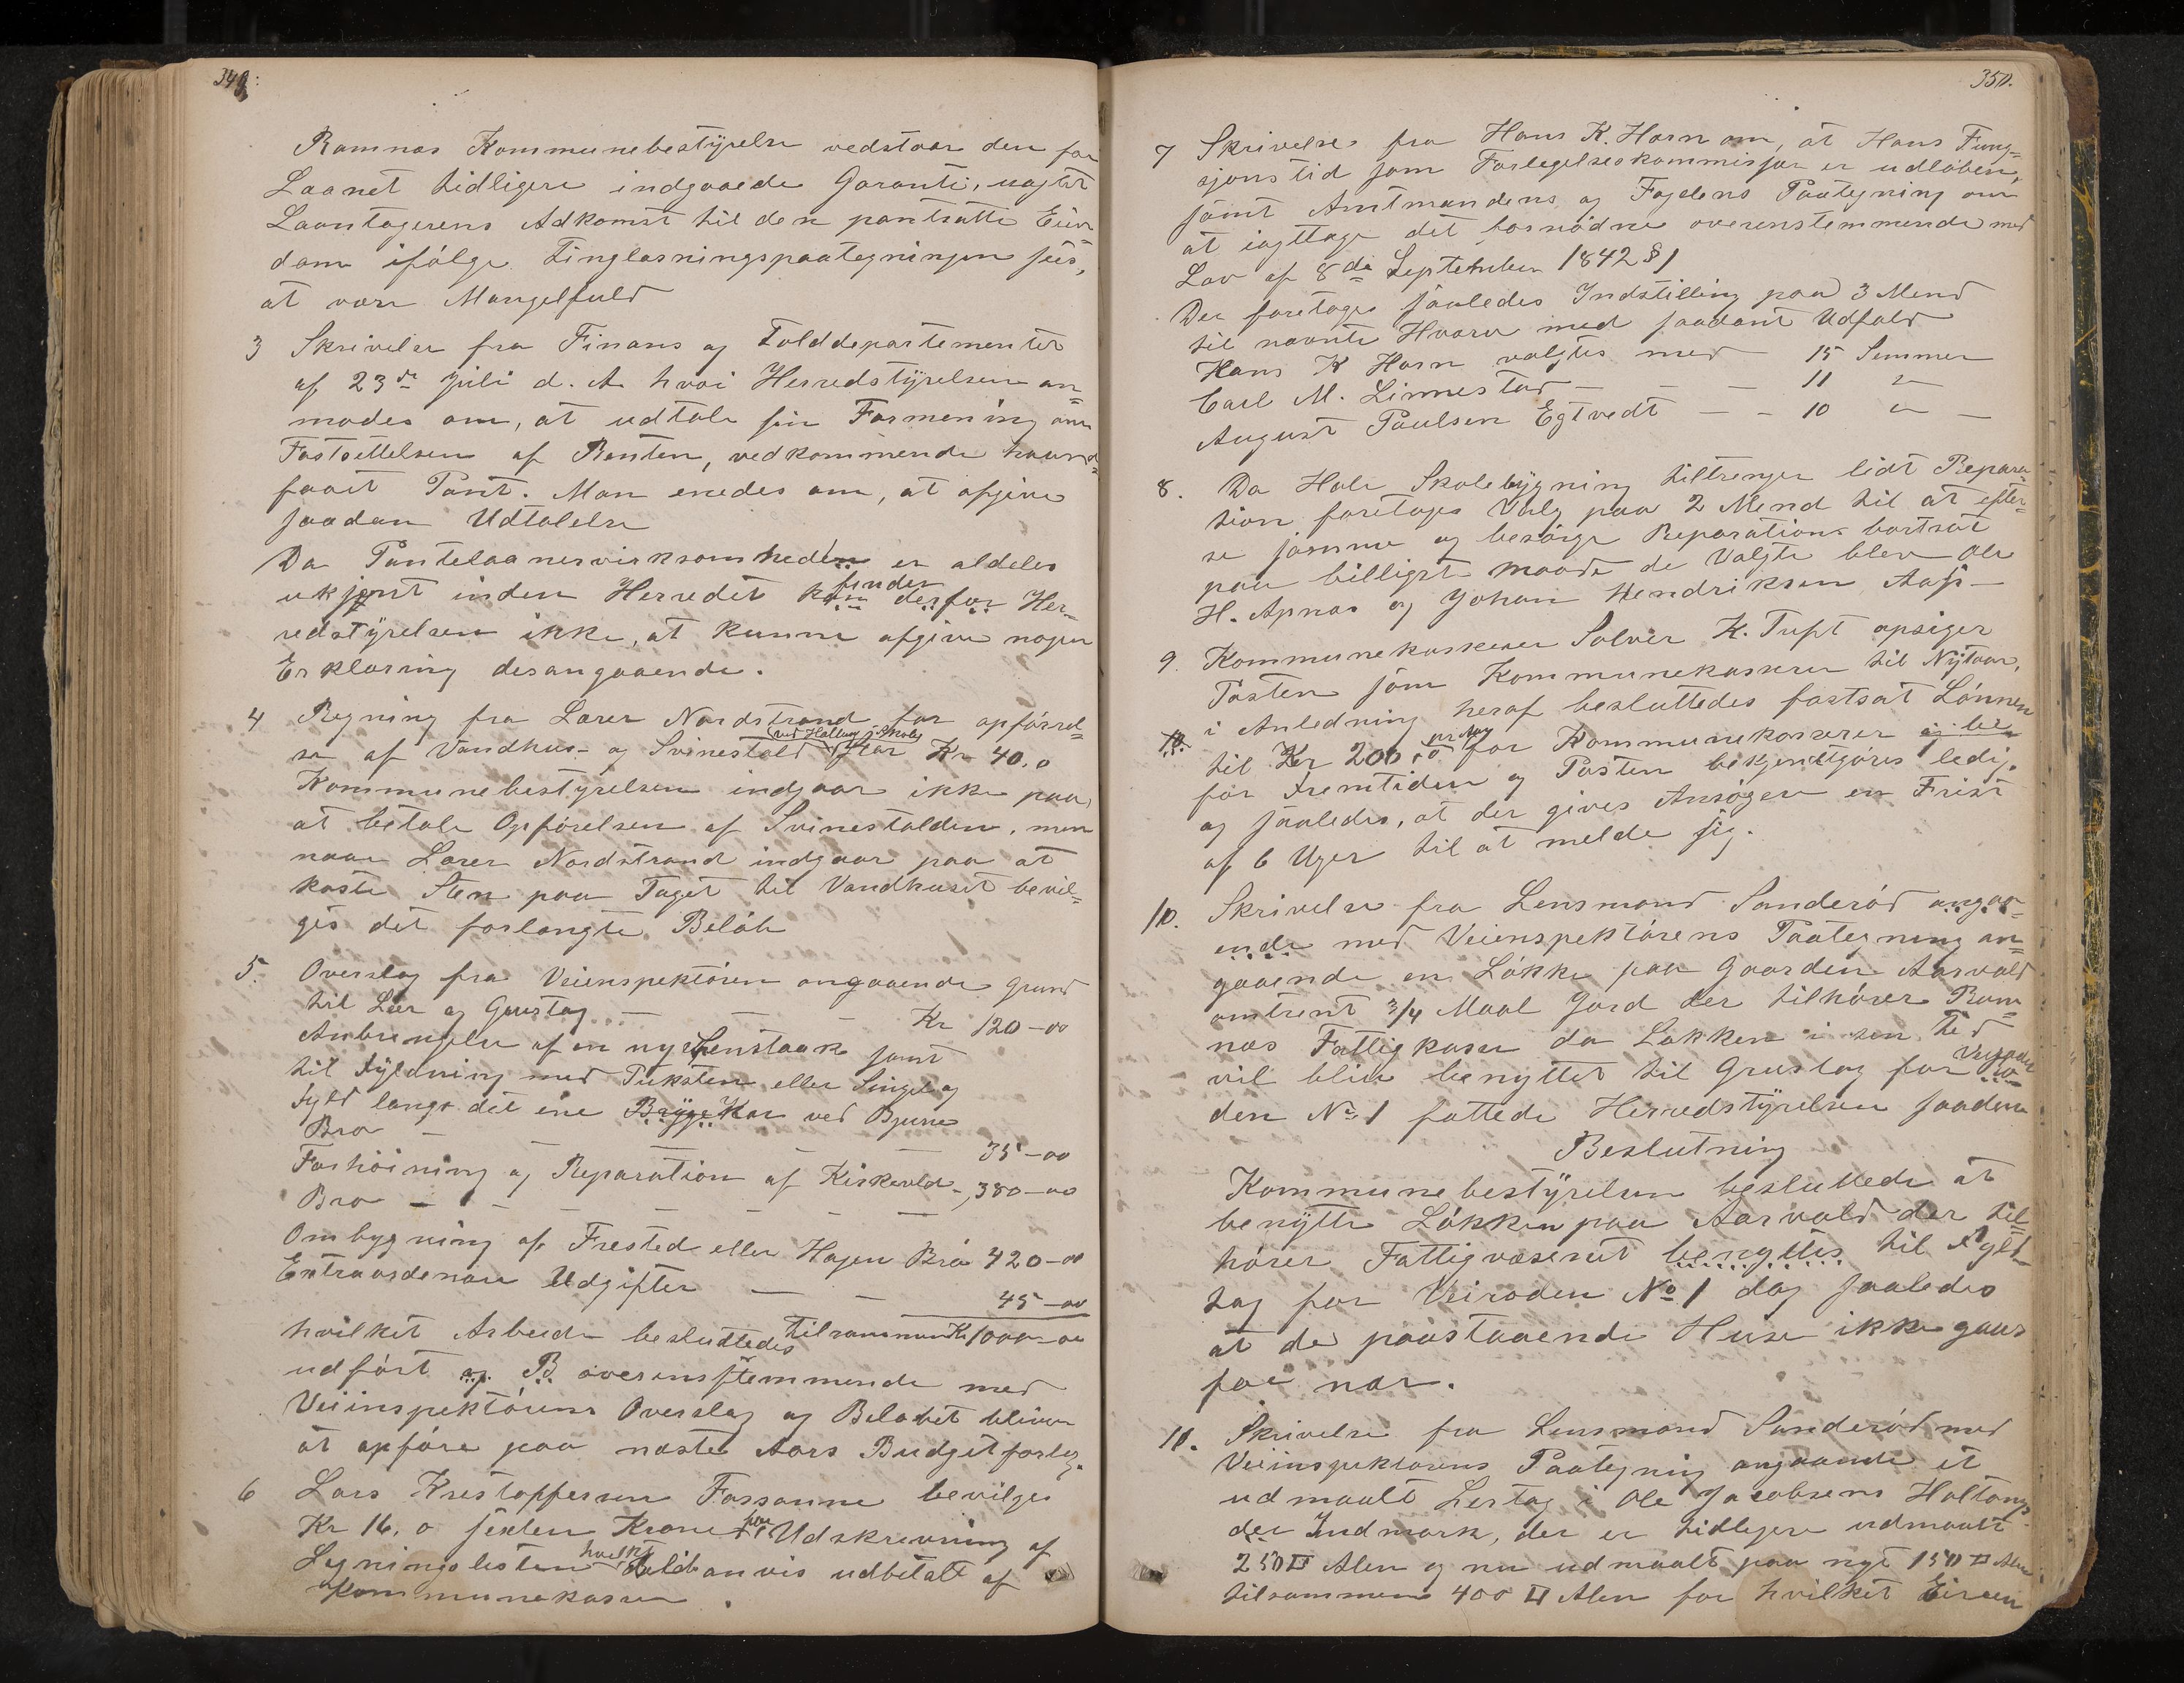 349.
Ramnæs Kommunebestÿrelse vedstaar den for
Laanet tidligere indgaaede Garanti, uagtet
Laantagerens Adkomst til den pantsatte Eien=
dom ifølge Tinglæsningspaategningen sees,
at være Mangelfuld
3 Skrivelse fra Finans og Tolddepartementet
af 23de Juli d. A. hvori Herredstÿrelsen an=
modes om, at udtale sin Formening om
Fastsettelsen af Renten, vedkommende haand=
faaet Pant. Man enedes om, at afgive
saadan Udtalelse
Da Pantelaanervirksomheden er aldeles
ukjent inden Herredet kan finder derfor Her=
redstÿrelsen ikke, at kunne afgive nogen
Erklæring desangaaende.
4 Regning fra Lærer Nordstrand for opførsel=
se af Vandhus- og Svinestald ved Hallung Skole stor Kr 40,0
Kommunebestÿrelsen indgaar ikke paa,
at betale Opførelsen af Svinestalden, men
naar Lærer Nordstrand indgaar paa at
koste Sten paa Taget til Vandhuset bevil=
ges det forlangte Beløb
5. Overslag fra Veiinspektøren angaaende Grund
til Leer og Grustag — — — Kr 120-00
Anbringelse af en ny Stenstaak samt
til Fÿldning med Puksten eller Singel og
Fyld langs det ene Brÿgge Kar ved Bjune
Bro — — — — 35-00
Forhöining og Reparation af Kirkevold
Bro — — — — — — 380-00
Ombygning af Frested eller Hagen Bro 420-00
Extraordenære Udgifter — — 45-00
hvilket Arbeide besluttedes tilsammen Kr 1000-00
udført og B overensstemmende med
Veiinspektørens Overslag og Beløbet bliver
at opføre paa næste Aars Budgetforlag.
6 Lars Kristoffersen Fossanne bevilges
Kr 16,0 sexten Kroner for Udskrivning af
Ligningslisten hvilket Beløb anvis udbetalt af
Kommunekassen.
350.
7 Skrivelse fra Hans K. Horn om, at Hans Fung=
sjonstid som Forlegelseskommissær er udløben,
samt Amtmandens og Fogdens Paategning om
at iagttage det fornødne overenstemmende med
Lov af 8de September 1842 § 1
Der foretoges saaledes Indstilling paa 3 Mend
til nævnte Hverv med saadant Udfald
Hans K Horn valgtes med 15 Stemmer
Carl M. Linnestad — — — 11 "
August Paulsen Egtvedt — — 10 " —
8. Da Hole Skolebÿgning tiltrenger lidt Repara
tion foretoges Valg paa 2 Mend til at efter=
se samme og besørge Reparations bortsat
paa billigst maade de Valgte blev Ole
H. Apnæs og Johan Hendriksen Aasi
9. Kommunekasserer Solver K. Tuft opsiger
Posten som Kommunekasserer til Nÿtaar,
i Anledning heraf besluttedes fastsat Lønnen
til Kr 200,0 pr Aar for Kommunekasserer
for Fremtiden og Posten bekjendtgøres ledig.
og saaledes, at der gives Ansøgere en Frist
af 6 Uger til at melde sig.
10. Skrivelse fra Lensmand Sanderød angaa=
ende med Veiinspektørens Paategning an=
gaaende en Løkke paa Gaarden Aarvold
omtrent 3/4 Maal Jord der tilhører Ram=
næs Fattigkasse da Løkken i sen Tid
vil blive benyttet til Grustag for Veiro
den No 1 fattede Herredstÿrelsen saadan
Beslutning
Kommunebestÿrelsen besluttede at
benÿtte Løkken paa Aarvold der til
hører Fattigvæsenet benyttes til Fÿld
tag for Veiroden No 1 dog saaledes
at de paastaaende Huse ikke gaaes
for nær.
11. Skrivelse fra Lensmand Sanderød med
Veiinspektørens Paategning angaaende et
udmaalt Lertag i Ole Jacobsens Holtung
der Indmark, der er tidligere udmaalt
250 □ Alen og nu udmaalt paa nyt 150 □ Alen
tilsammen 400 □ Alen for hvilket Eieren